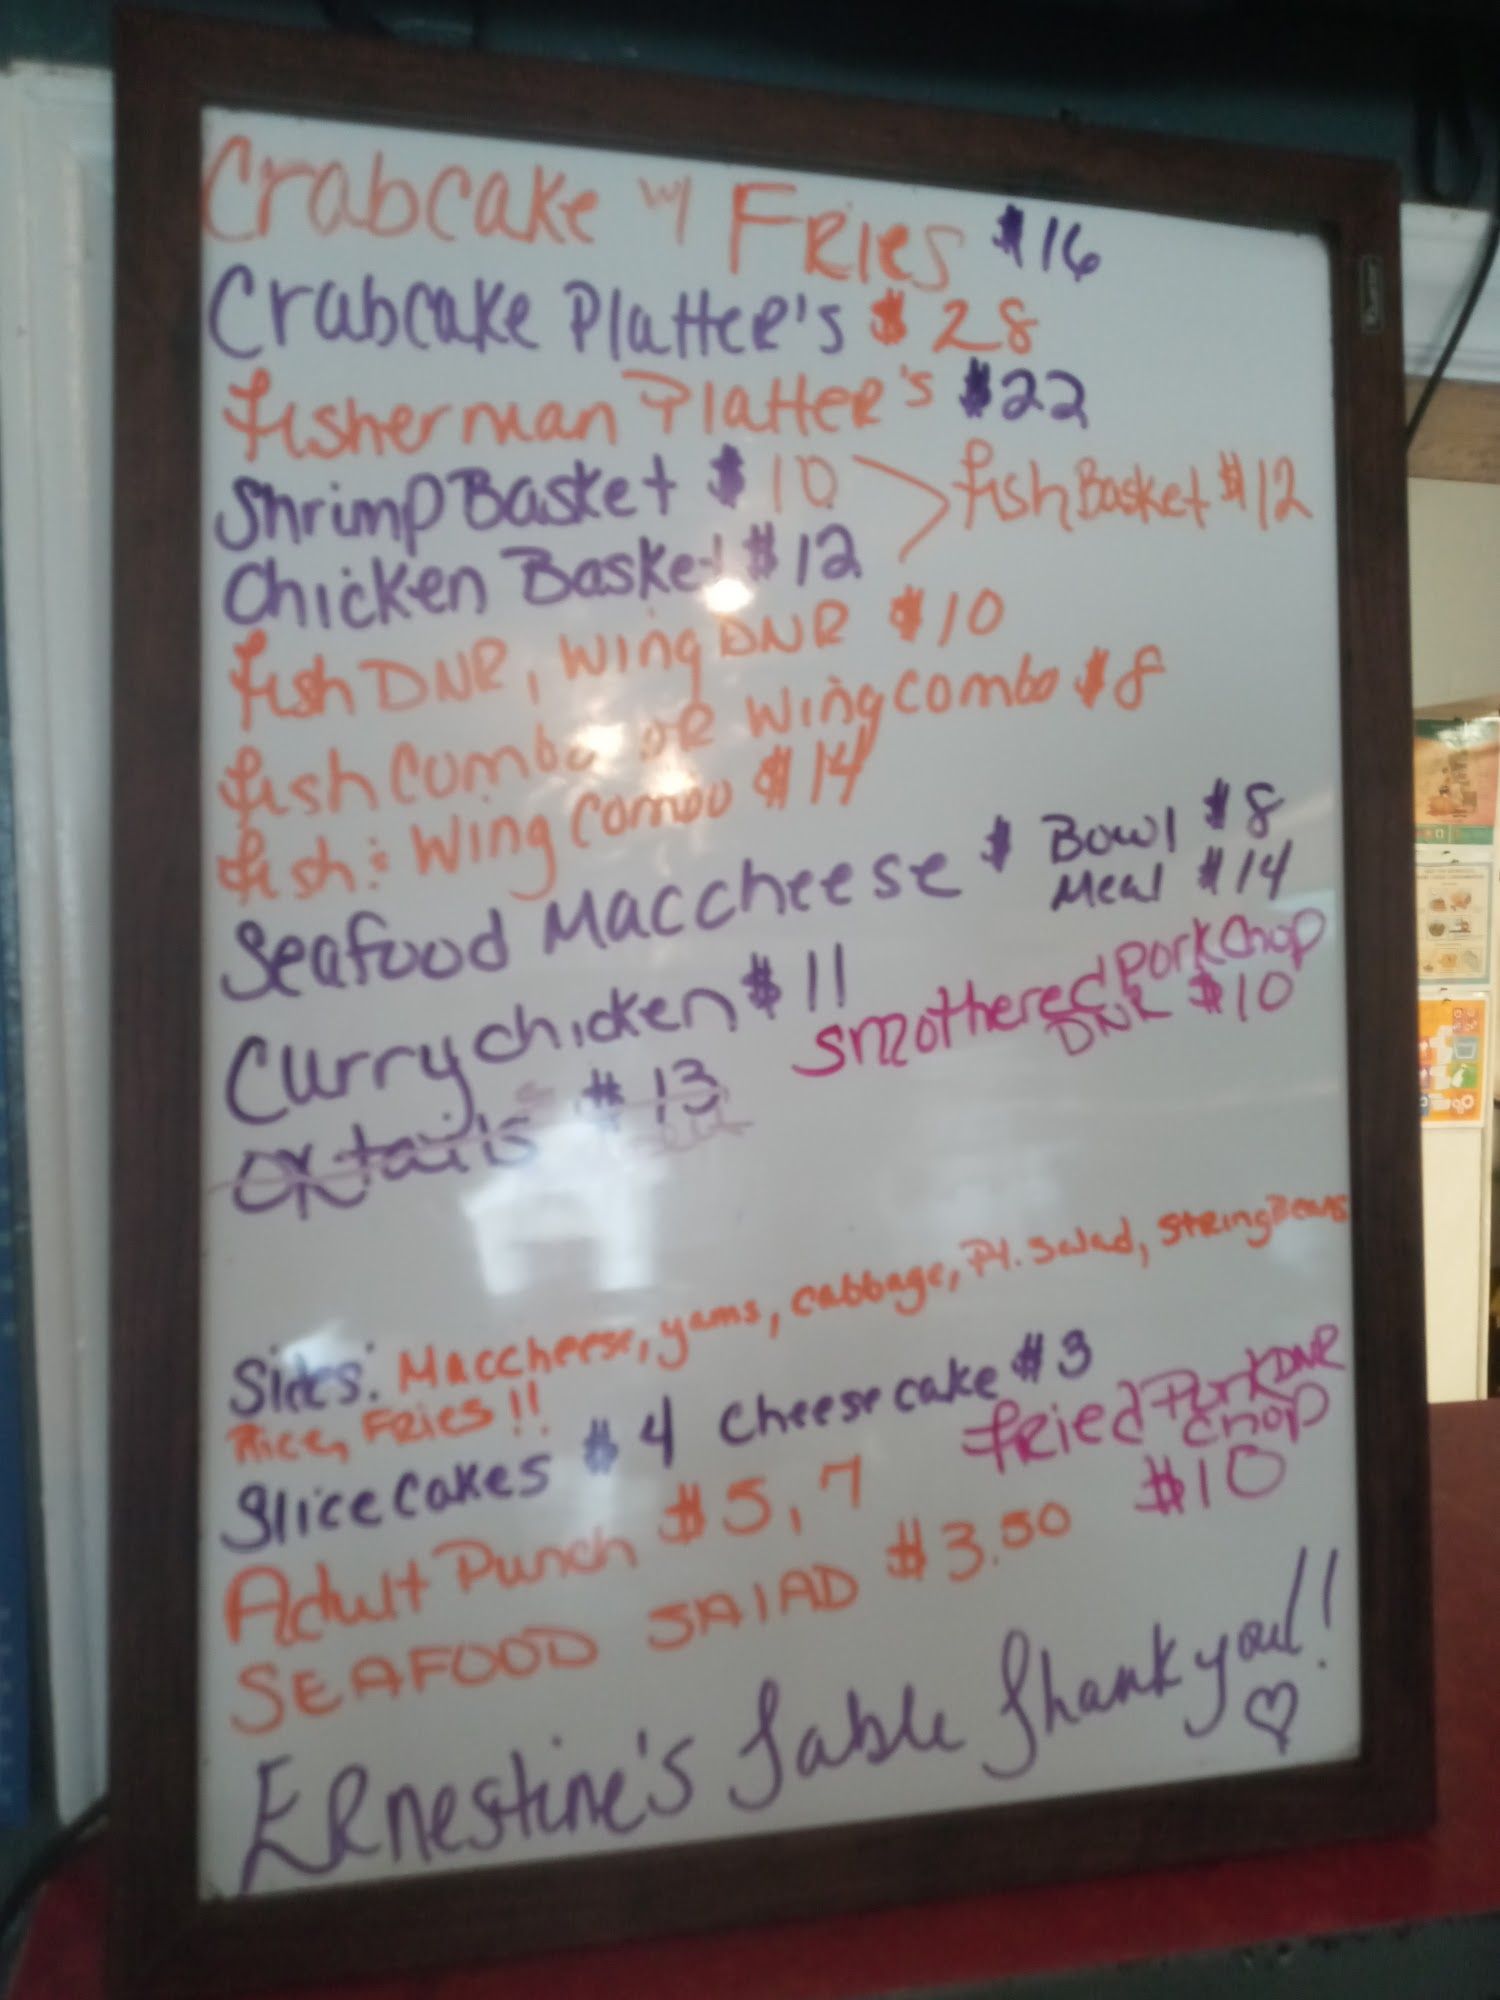 Crabcake w/ Fries $16
Crabcake Platter's $28
Fisherman Platter's $22
Shrimp Basket $10
Fish Basket $12
Chicken Basket $12
Fish DNR, Wing DNR $10
Fish Combo OR Wing Combo $8
Fish & Wing Combo $14
Seafood Maccheese $ Bowl $8
Meal $14
Curry chicken $11
Smothered Pork Chop
DNR $10
Oxtails $13
Sides: Maccheese, yams, cabbage, Pt. Salad, String Beans
Rice, Fries!!
Slice Cakes $4 Cheese cake $3
Fried Pork DNR
Chop
$10
Adult Punch $5, 7
SEAFOOD SALAD $3.50
Ernestine's Table Thank you!!